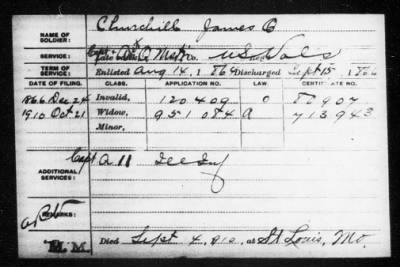 NAME OF SOLDIER: Churchill James O
SERVICE: Capt & A Q Mstr Co. U S Vols
TERM OF SERVICE: Enlisted Aug 14, 186 Discharged Sept 15, 186
DATE OF FILING. CLASS. APPLICATION NO. LAW. CERTIFICATE NO.
1866 Dec 24 Invalid, 120409 0 80907
1910 Oct 21 Widow, 951084 A 713943
Minor,
ADDITIONAL SERVICES: Capt A 11 Ill Inf
REMARKS:
M. M.
Died Sept 4, 910, at St Louis, Mo.